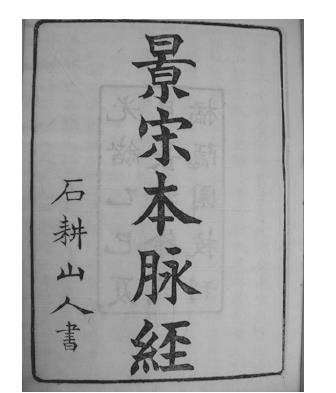 景宋本脉經
石耕山人書